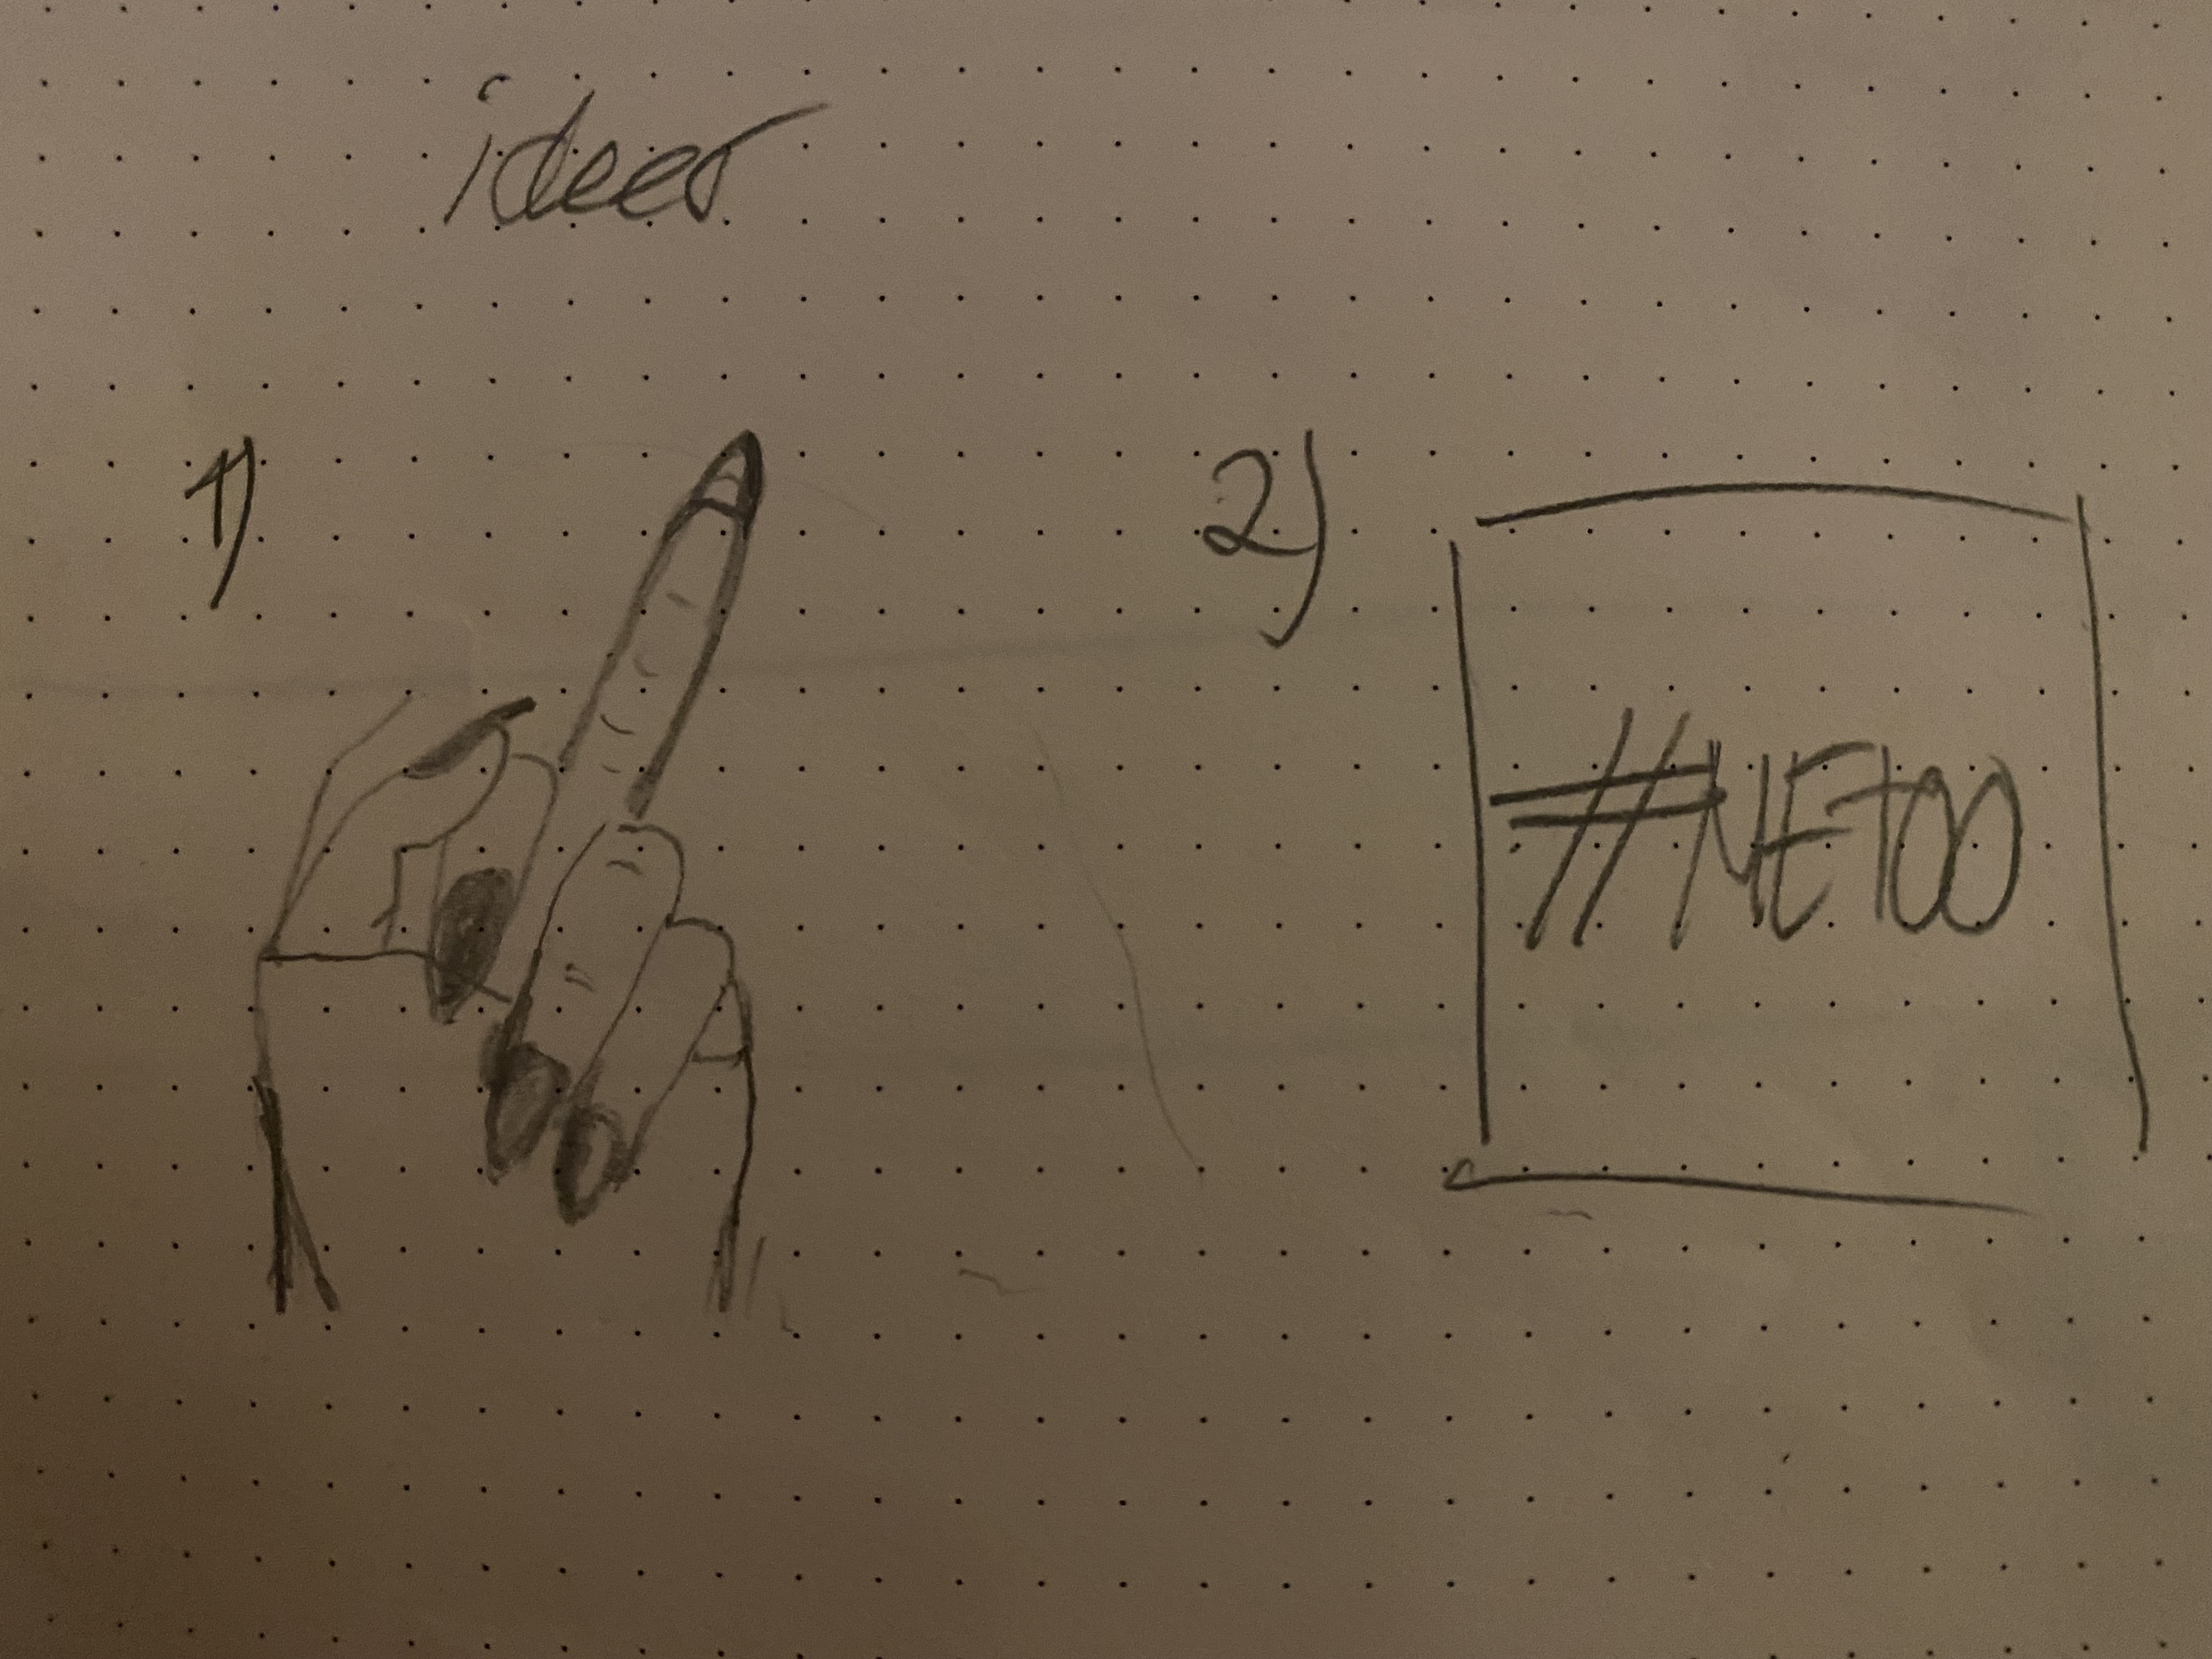 ideer
1)
2)
#METOO